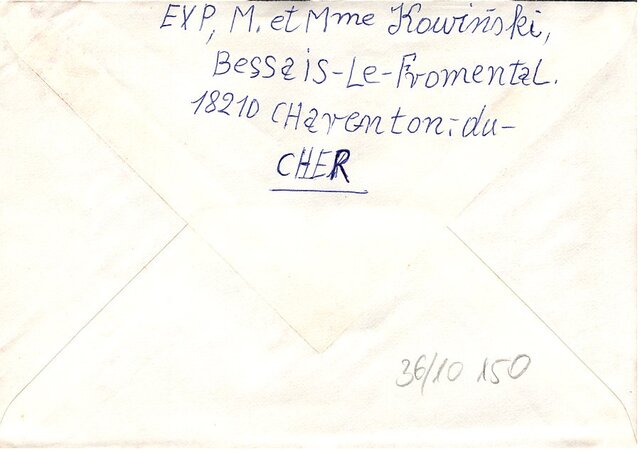 EXP, M. et Mme Kowiński,
Bessais-Le-Fromental.
18210 CHarenton-du-
CHER
36/10 150